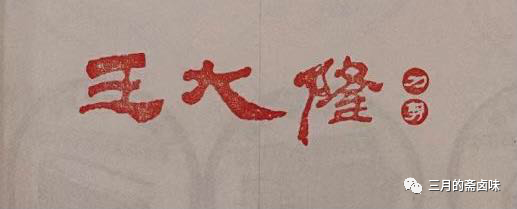 王大隆
刀剪
三月的斋卤味